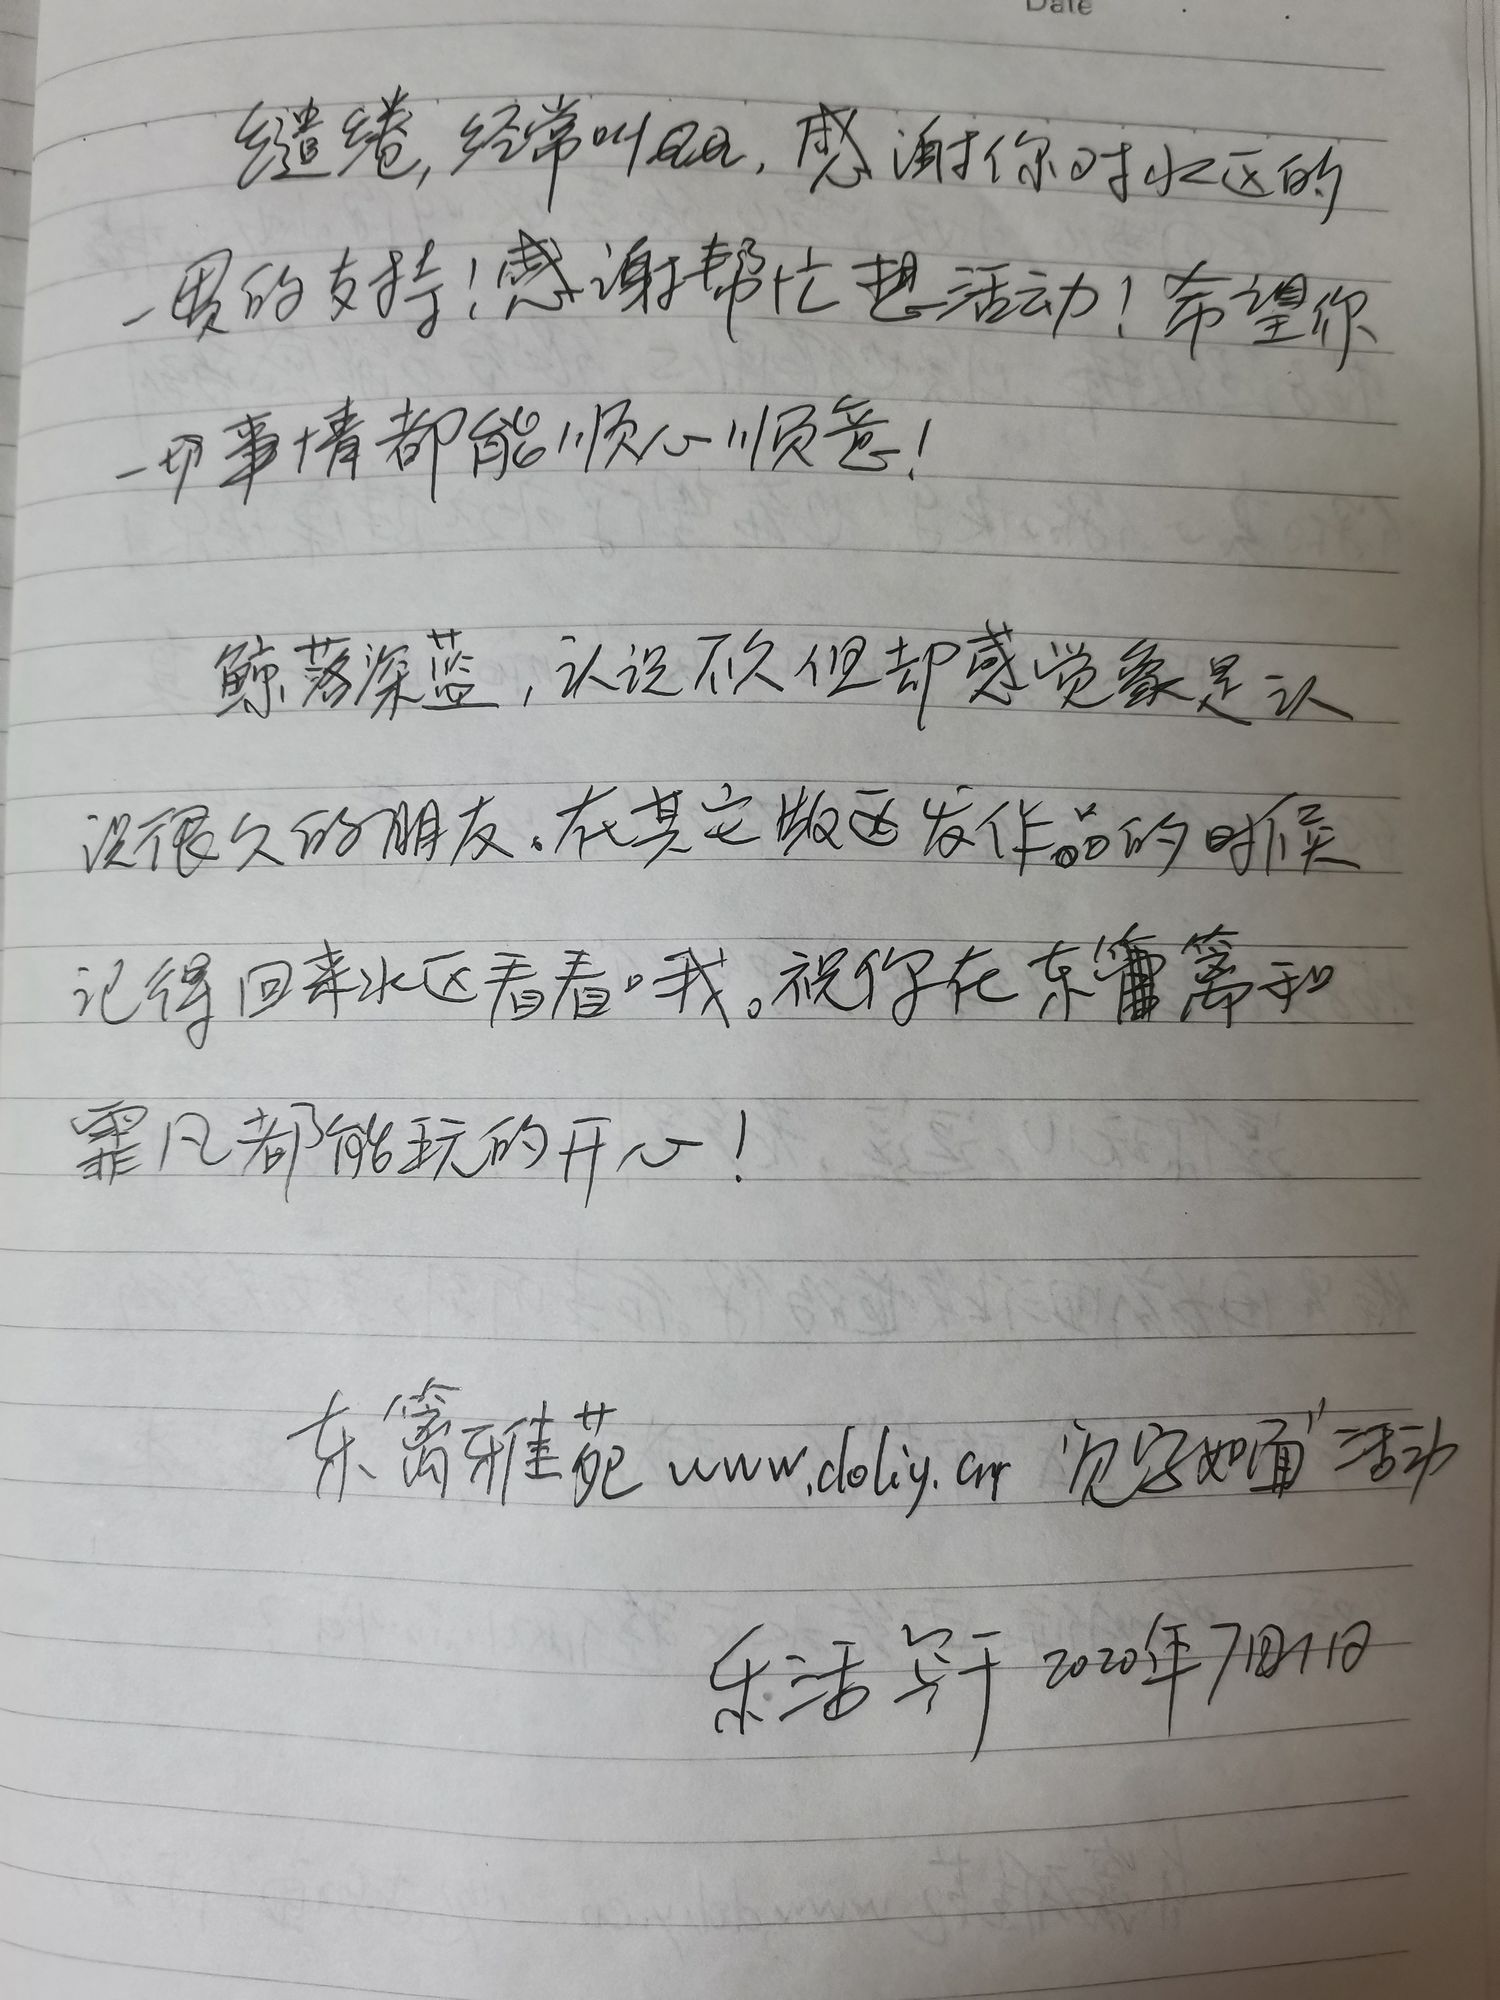 Date
缱绻,经常叫QQ,感谢你对水区的
一贯的支持!感谢帮忙想活动!希望你
一切事情都能顺心顺意!
鲸落深蓝,认识不久但却感觉象是认
识很久的朋友。在其它版区发作品的时候
记得回来水区看看哦。祝你在东篱和
霏凡都能玩的开心!
东篱雅苑 www.doliy.cn "见字如面"活动
乐活写于2020年7月1日